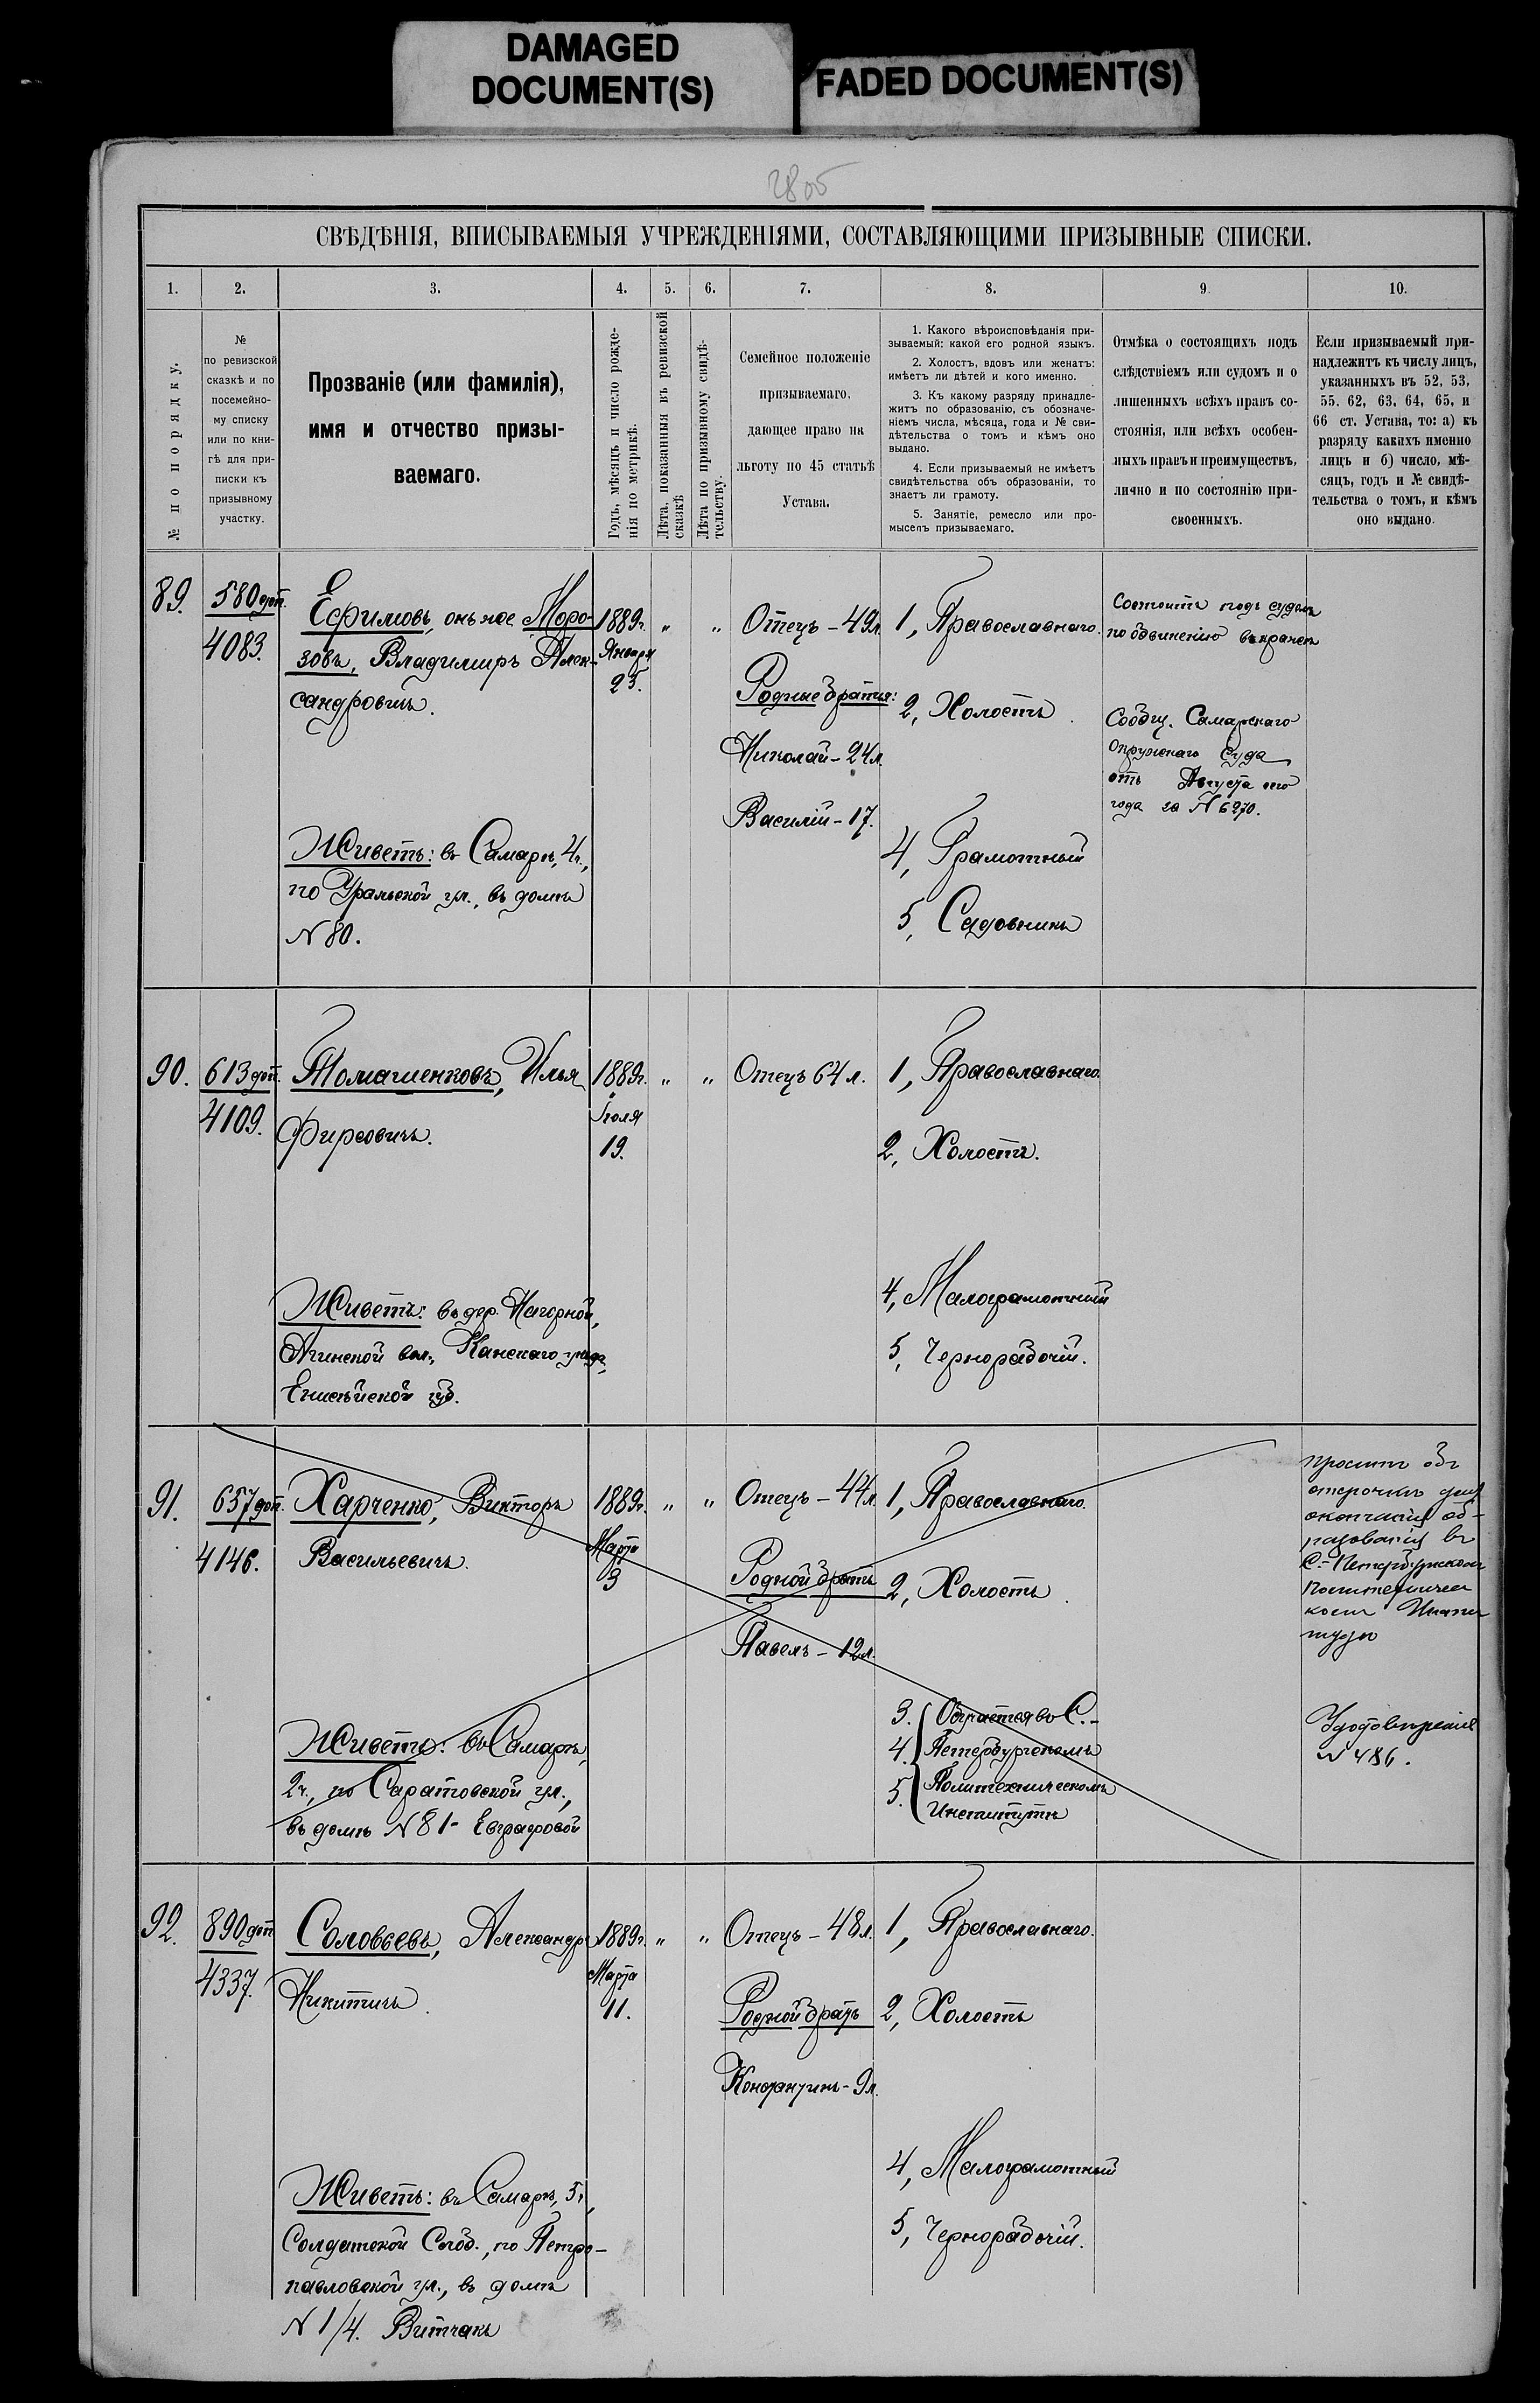 DAMAGED
DOCUMENT(S)
FADED DOCUMENT(S)
2805
СВѢДѢНІЯ, ВПИСЫВАЕМЫЯ УЧРЕЖДЕНІЯМИ, СОСТАВЛЯЮЩИМИ ПРИЗЫВНЫЕ СПИСКИ.
1.
2.
3.
4.
5.
6.
7.
8.
9.
10.
№ по порядку.
№
по ревизской
сказкѣ и по
посемейно-
му списку
или по кни-
гѣ для при-
писки къ
призывному
участку.
Прозваніе (или фамилія),
имя и отчество призы-
ваемаго.
Годъ, мѣсяцъ и число рожде-
нія по метрикѣ.
Лѣта, показанныя въ ревизской
сказкѣ
Лѣта по призывному свидѣ-
тельству.
Семейное положеніе
призываемаго,
дающее право на
льготу по 45 статьѣ
Устава.
1. Какого вѣроисповѣданія при-
зываемый: какой его родной языкъ.
2. Холостъ, вдовъ или женатъ:
имѣетъ ли дѣтей и кого именно.
3. Къ какому разряду принадле-
житъ по образованію, съ обозначе-
ніемъ числа, мѣсяца, года и № сви-
дѣтельства о томъ и кѣмъ оно
выдано.
4. Если призываемый не имѣетъ
свидѣтельства объ образованіи, то
знаетъ ли грамоту.
5. Занятіе, ремесло или про-
мыселъ призываемаго.
Отмѣка о состоящихъ подъ
слѣдствіемъ или судомъ и о
лишенныхъ всѣхъ правъ со-
стоянія, или всѣхъ особен-
ныхъ правъ и преимуществъ,
лично и по состоянію при-
своенныхъ.
Если призываемый при-
надлежитъ къ числу лицъ,
указанныхъ въ 52, 53,
55, 62, 63, 64, 65, и
66 ст. Устава, то: а) къ
разряду какихъ именно
лицъ и б) число, мѣ-
сяцъ, годъ и № свидѣ-
тельства о томъ, и кѣмъ
оно выдано.
89.
580 доп.
4083.
Ефимовъ, онъ же Моро-
зовъ, Владимиръ Алек-
сандровичъ.
Живетъ: въ Самарѣ, 4ч.,
по Уральской ул., въ домѣ
N 80.
1889г.
Января
25.
"
"
Отецъ – 49л.
Родные братья:
Николай – 24л.
Василій – 17.
1, Православнаго.
2, Холостъ.
4, Грамотный
5, Садовникъ
Состоитъ подъ судомъ
по обвиненію въ кражѣ
Сообщ. Самарскаго
Окружнаго Суда
отъ Августа сего
года за N 6270.
90.
613 доп.
4109.
Томашенковъ, Илья
Фирсовичъ.
Живетъ: въ дер. Нагорной,
Агинской вол., Канскаго уѣзда,
Енисейской губ.
1889г.
Іюля
19.
"
"
Отецъ 64 л.
1, Православнаго.
2, Холостъ.
4, Малограмотный
5, Чернорабочій.
91.
657 доп.
4146.
Харченко, Викторъ
Васильевичъ.
Живетъ: въ Самарѣ,
2ч., по Саратовской ул.,
въ домѣ N 81 – Евграфовой
1889г.
Марта
3
"
"
Отецъ – 44л.
Родной братъ
Павелъ – 12л.
1, Православнаго.
2, Холостъ.
3. Обучается въ С.-
4. Петербургскомъ
5. Политехническомъ
Институтѣ
проситъ объ
отсрочкѣ для
окончанія об-
разованія въ
С.-Петербургскомъ
Политехничес
комъ Инсти
тутѣ
Удостовѣреніе
N 486.
92.
890 доп.
4337.
Соловьевъ, Александръ
Никитичъ.
Живетъ: въ Самарѣ, 5ч,
Солдатской Слоб., по Петро-
павловской ул., въ домѣ
N 1/4. Витчакъ
1889г.
Марта
11.
"
"
Отецъ – 48л.
Родной братъ
Константинъ – 9л.
1, Православнаго.
2, Холостъ
4, Малограмотный
5, Чернорабочій.